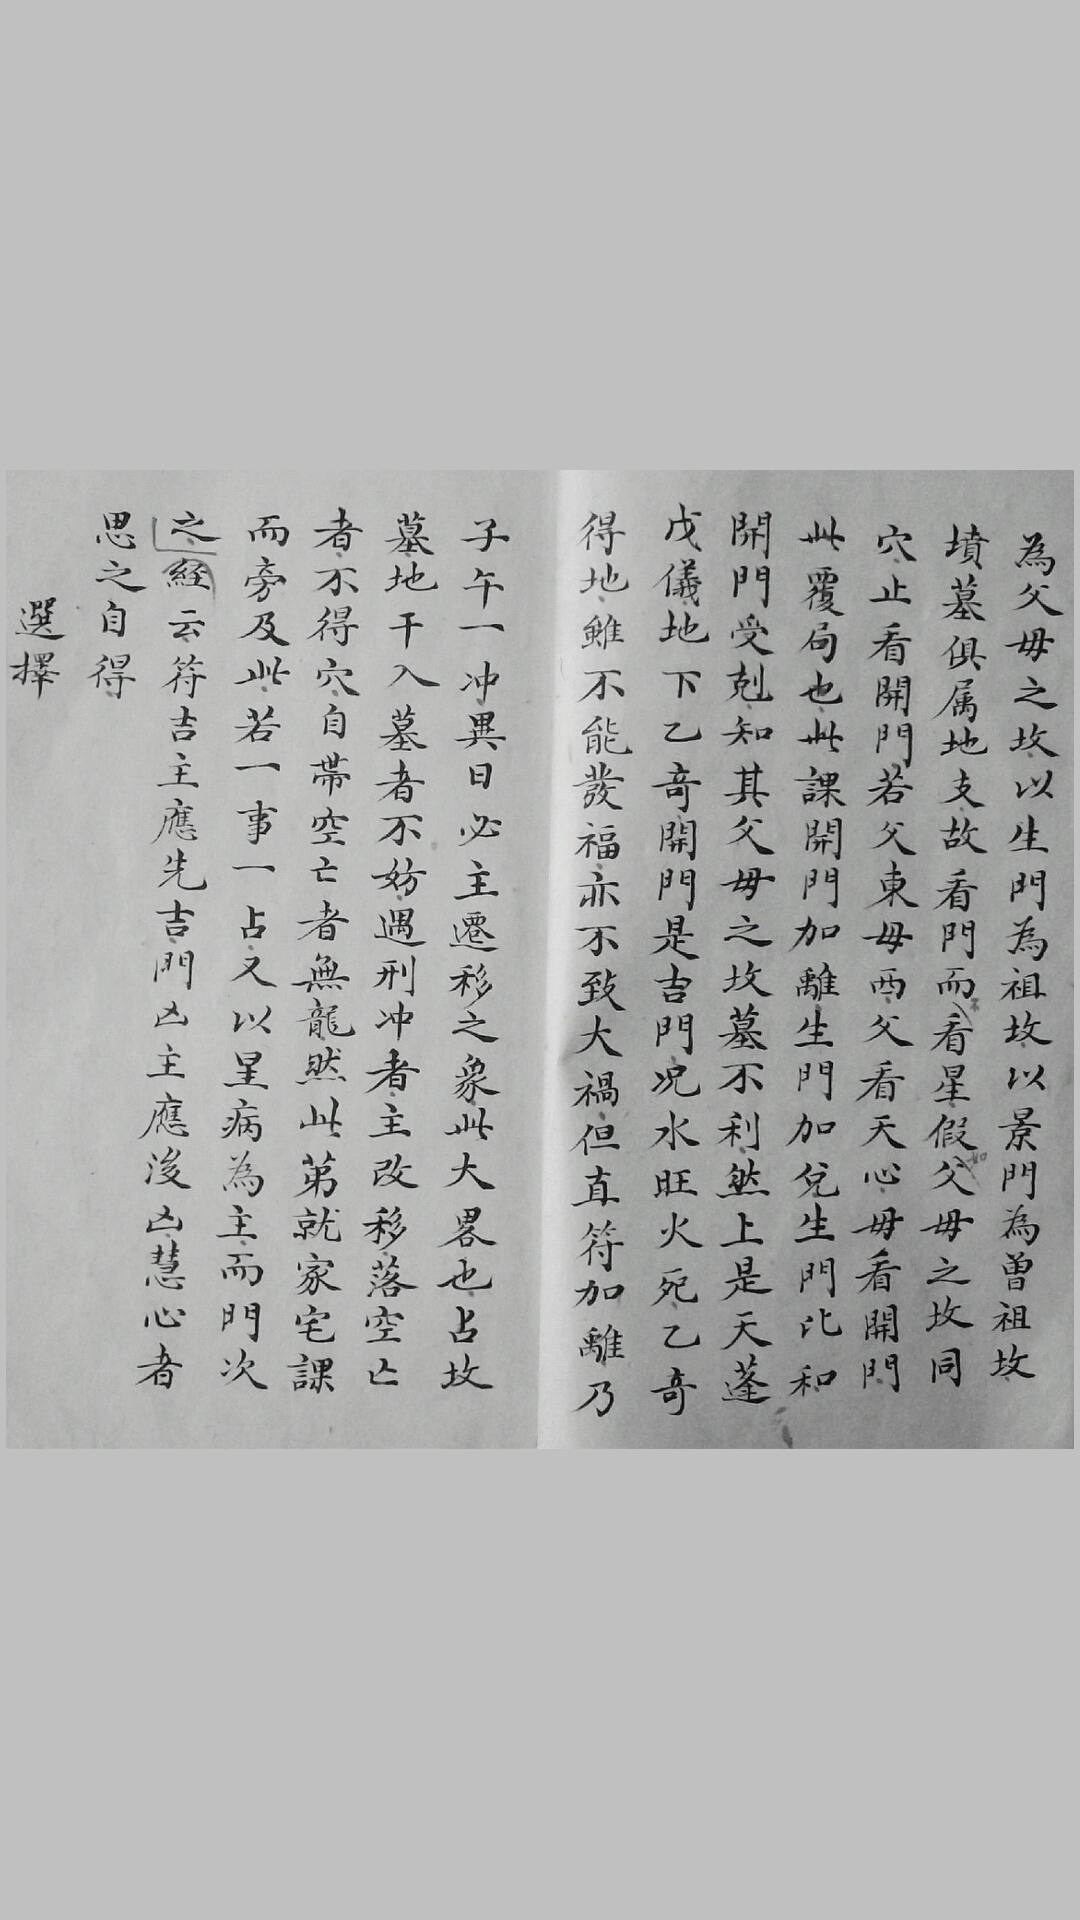 為父母之坟以生門為祖坟以景門為曽祖坟
墳墓俱属地支故看門而看星假父母之坟同
穴止看開門若父東母西父看天心母看開門
此覆局也此課開門加離生門加兌生門比和
開門受剋知其父母之坟墓不利然上是天蓬
戊儀地下乙竒開門是吉門况水旺火死乙竒
得地雖不能發福亦不致大禍但直符加離乃
子午一冲異日必主遷移之象此大畧也占坟
墓地干入墓者不妨遇刑冲者主改移落空亡
者不得穴自帯空亡者無龍然此第就家宅課
而旁及此若一事一占又以星病為主而門次
之経云符吉主應先吉門凶主應後凶慧心者
思之自得
選擇